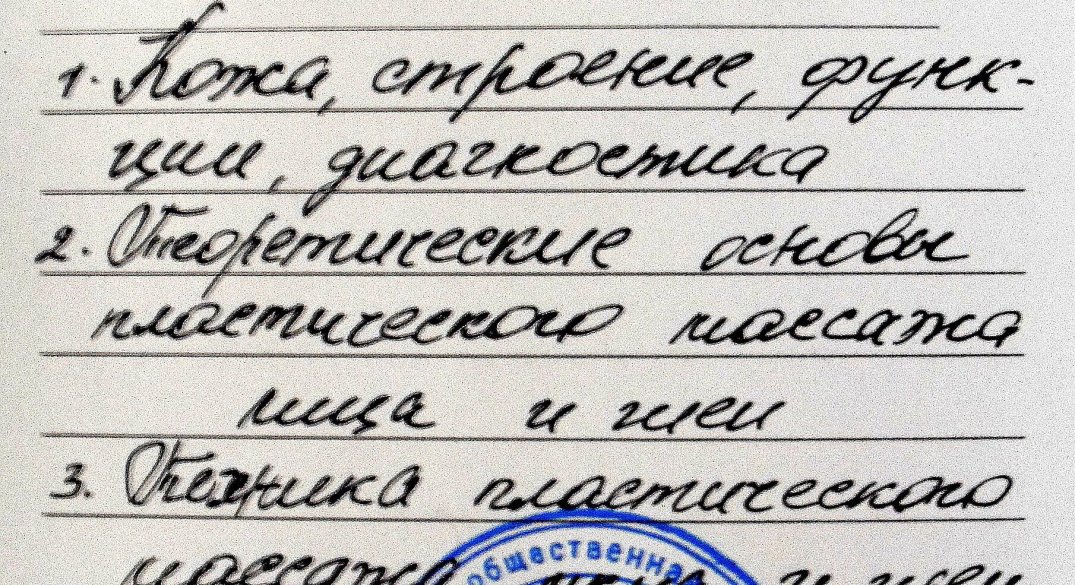 1. Кожа, строение, функ-
ции, диагностика
2. Теоретические основы
пластического массажа
лица и шеи
3. Техника пластического
массажа лица и шеи
общественная